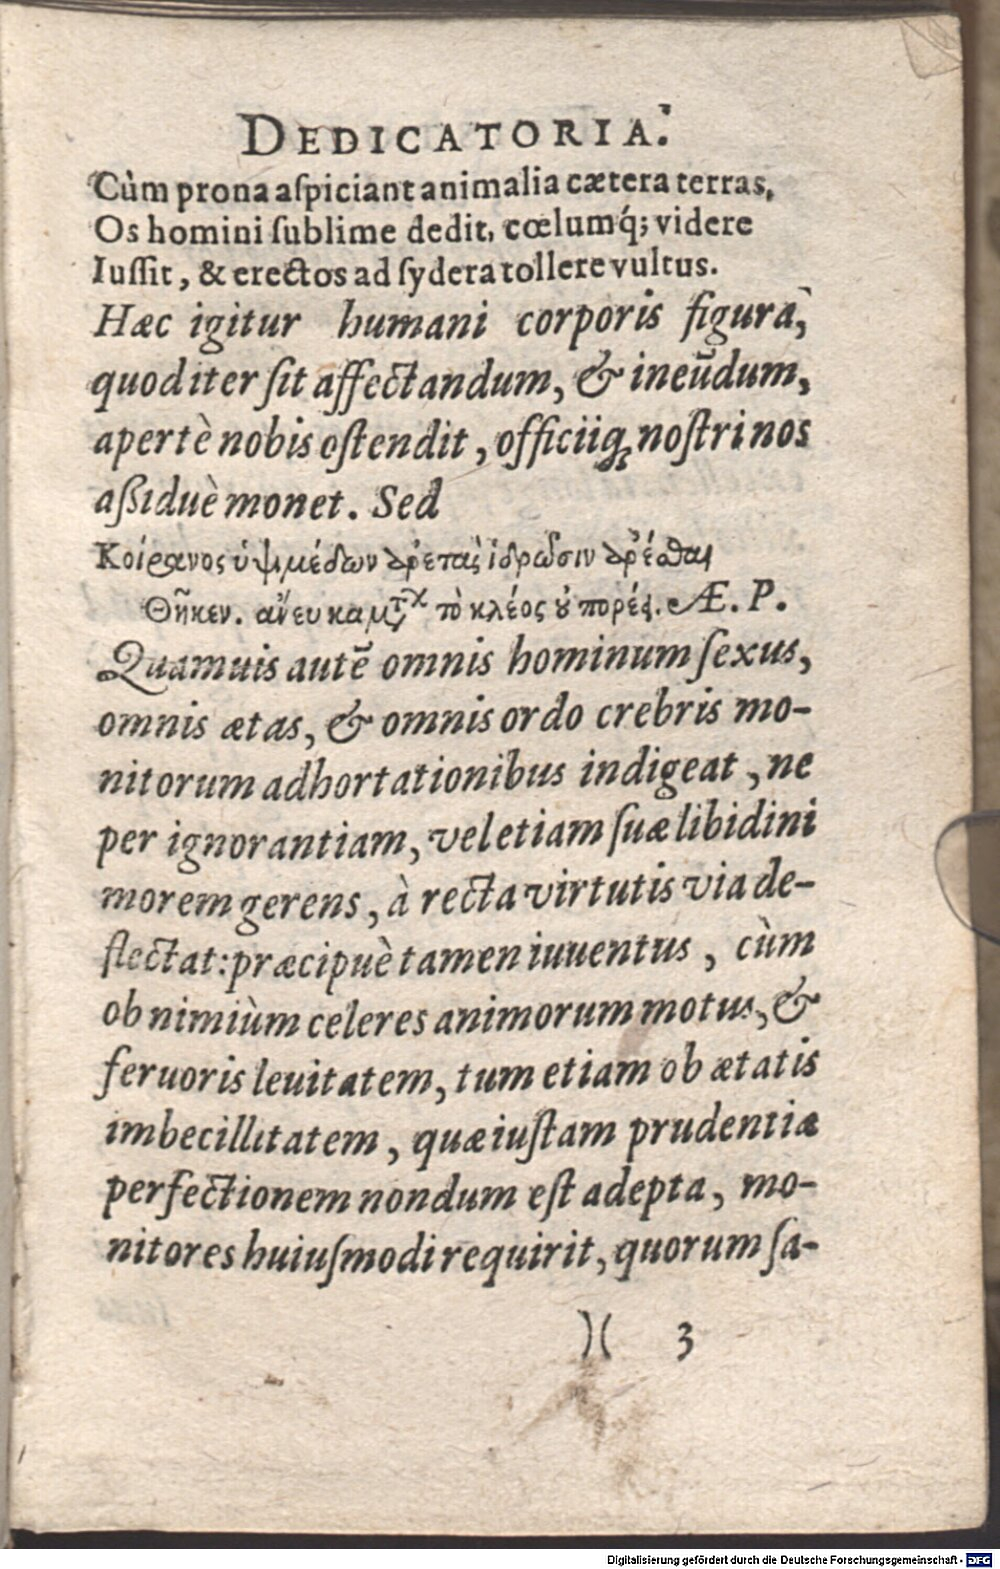 DEDICATORIA.
Cùm prona aſpiciant animalia cætera terras,
Os homini ſublime dedit, cœlumq́; videre
Iuſſit, & erectos ad ſydera tollere vultus.
Hæc igitur humani corporis figura,
quod iter ſit affectandum, & ineūdum,
apertè nobis oſtendit, officiiq; noſtri nos
aßiduè monet. Sed
Κοίρανος ὑψιμέδων ἀρετὰς ἱδρῶσιν ἀρέσθαι
Θῆκεν. ἄνευ καμάτȣ τὸ κλέος ȣ̓ πορές. Æ. P.
Quamuis autē omnis hominum ſexus,
omnis ætas, & omnis ordo crebris mo-
nitorum adhortationibus indigeat, ne
per ignorantiam, vel etiam ſuæ libidini
morem gerens, à recta virtutis via de-
flectat: præcipuè tamen iuuentus, cùm
ob nimiùm celeres animorum motus, &
feruoris leuitatem, tum etiam ob ætatis
imbecillitatem, quæ iuſtam prudentiæ
perfectionem nondum eſt adepta, mo-
nitores huiuſmodi requirit, quorum ſa-
)( 3
Digitalisierung gefördert durch die Deutsche Forschungsgemeinschaft - DFG